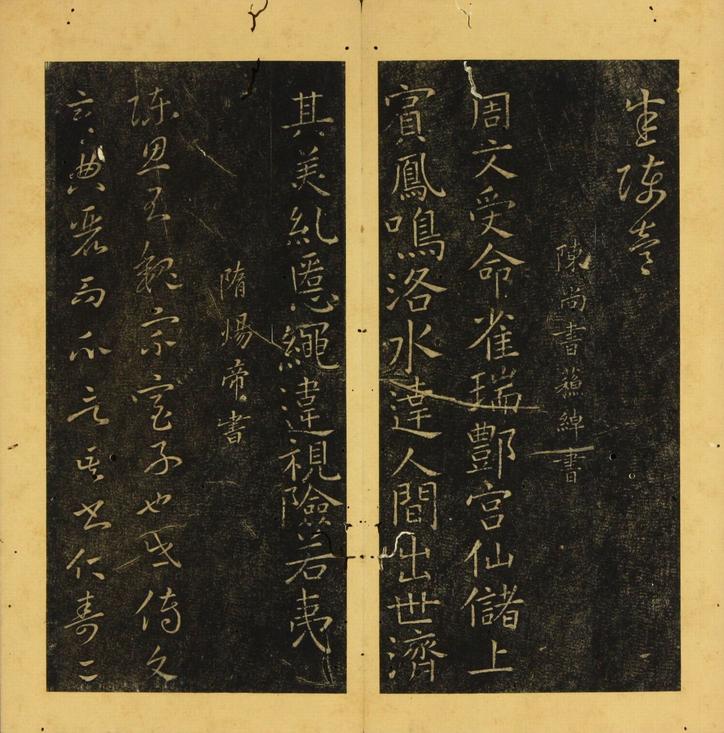 陳尚書緯書
周文受命雀瑞酆宫仙儲上
賓鳳鳴洛水達人間出世濟
其美糺慝繩違視險若夷
隋煬帝書
陳思王魏宗室子也世傳文
章典麗而不言其書仁壽二